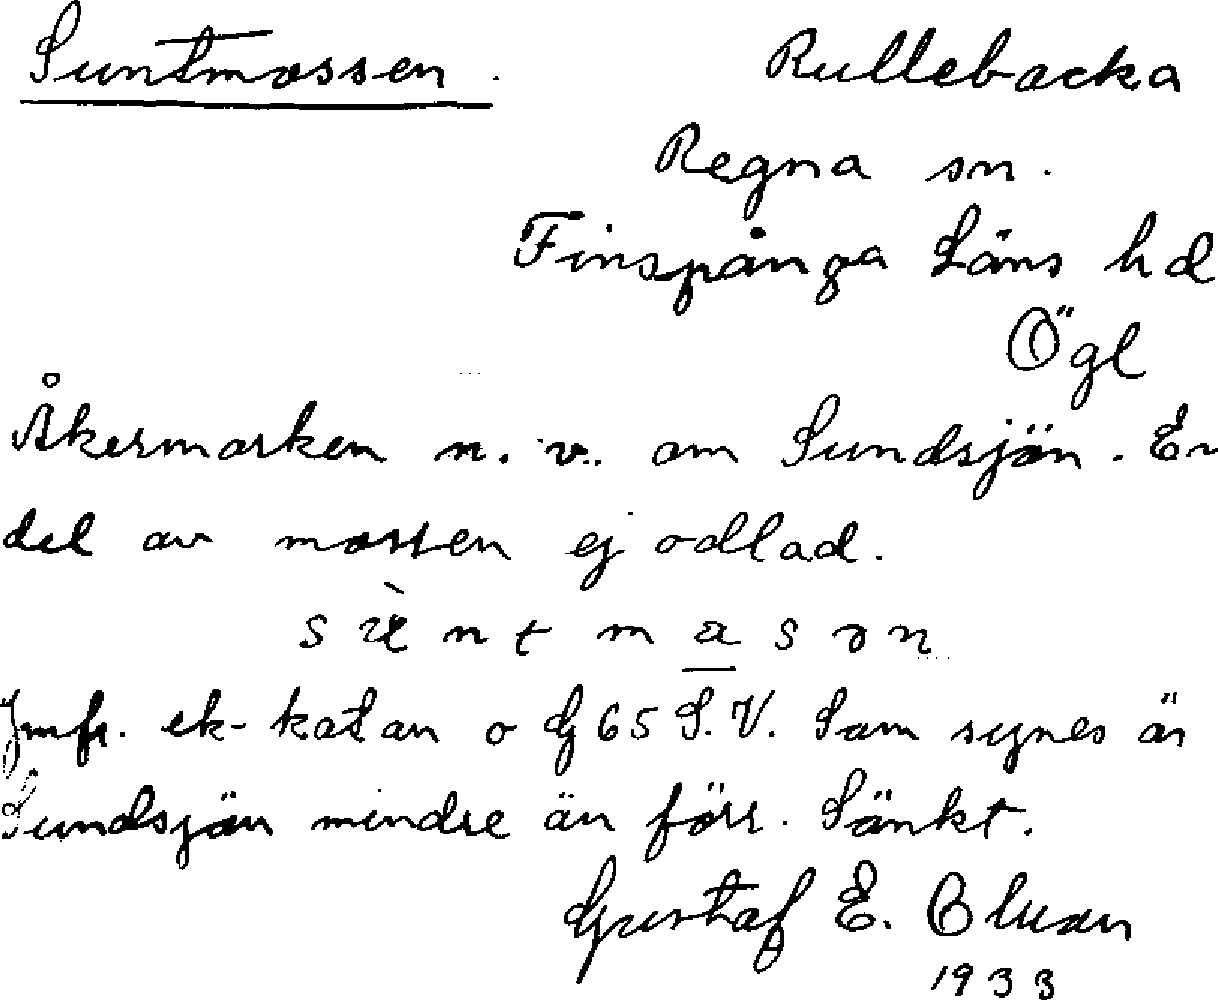 Suntmossen. Rullebacka
Regna sn.
Finspånga Läns hd
Ögl
Åkermarken n.v. om Sundsjön. En
del av mossen ej odlad.
Jmfr. ek-kartan o G 65 S.V. Som synes är
Sundsjön mindre än förr. Sänkt.
Gustaf E.
1933